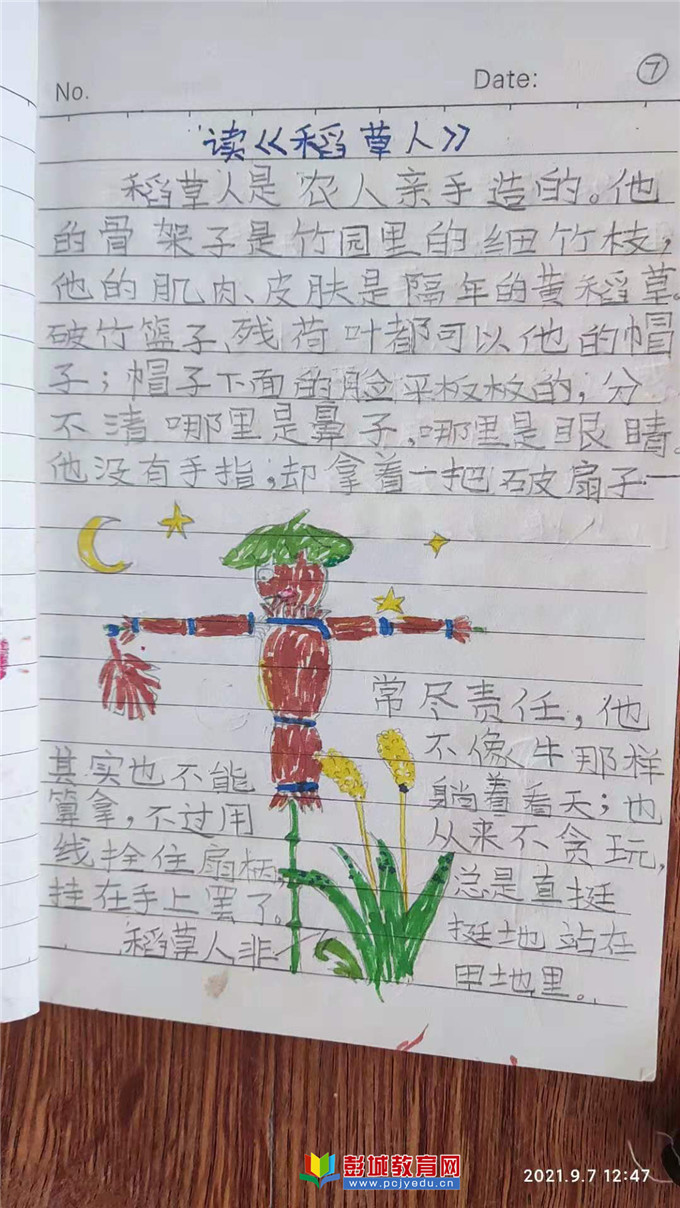 No.
Date:
⑦
读《稻草人》
稻草人是农人亲手造的。他
的骨架子是竹园里的细竹枝，
他的肌肉、皮肤是隔年的黄稻草。
破竹篮子、残荷叶都可以他的帽
子；帽子下面的脸平板板的，分
不清哪里是鼻子，哪里是眼睛。
他没有手指，却拿着一把破扇子一
其实也不能
算拿，不过用
线拴住扇柄，
挂在手上罢了。
稻草人非
常尽责任，他
不像牛那样
躺着看天；也
从来不贪玩，
总是直挺
挺地站在
田地里。
彭城教育网
www.pcjyedu.com
2021.9.7 12:47